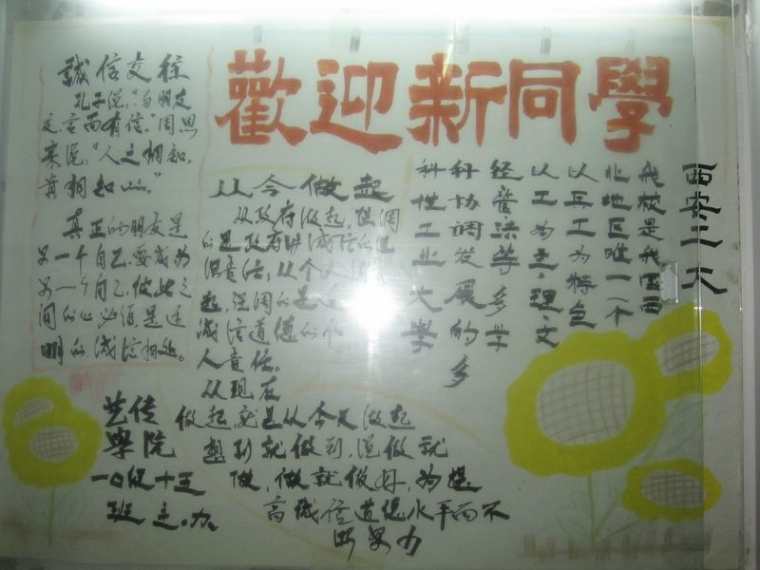 歡迎新同學
誠信交往
孔子说，"与朋友
交，言而有信。"周恩
来说，"人之相知，
贵相知心。"
真正的朋友是
另一个自己，要成为
另一个自己，彼此之
间的心必须是透
明的诚信相处。
从今做起
从政府做起，强调
的是政府讲诚信的
责任，从个人
起，强调的是
诚信道德的
人责任。
从现在
做起就是从今天做起
想到就做到，说做就
做，做就做好，为提
高诚信道德水平而不
断努力
我校是我国西
北地区唯一一个
以兵工为特色
以工为主，理文
经管法等多学
科协调发展的多
科性工业大學
西安工大
艺传
學院
一〇级十三
班主办